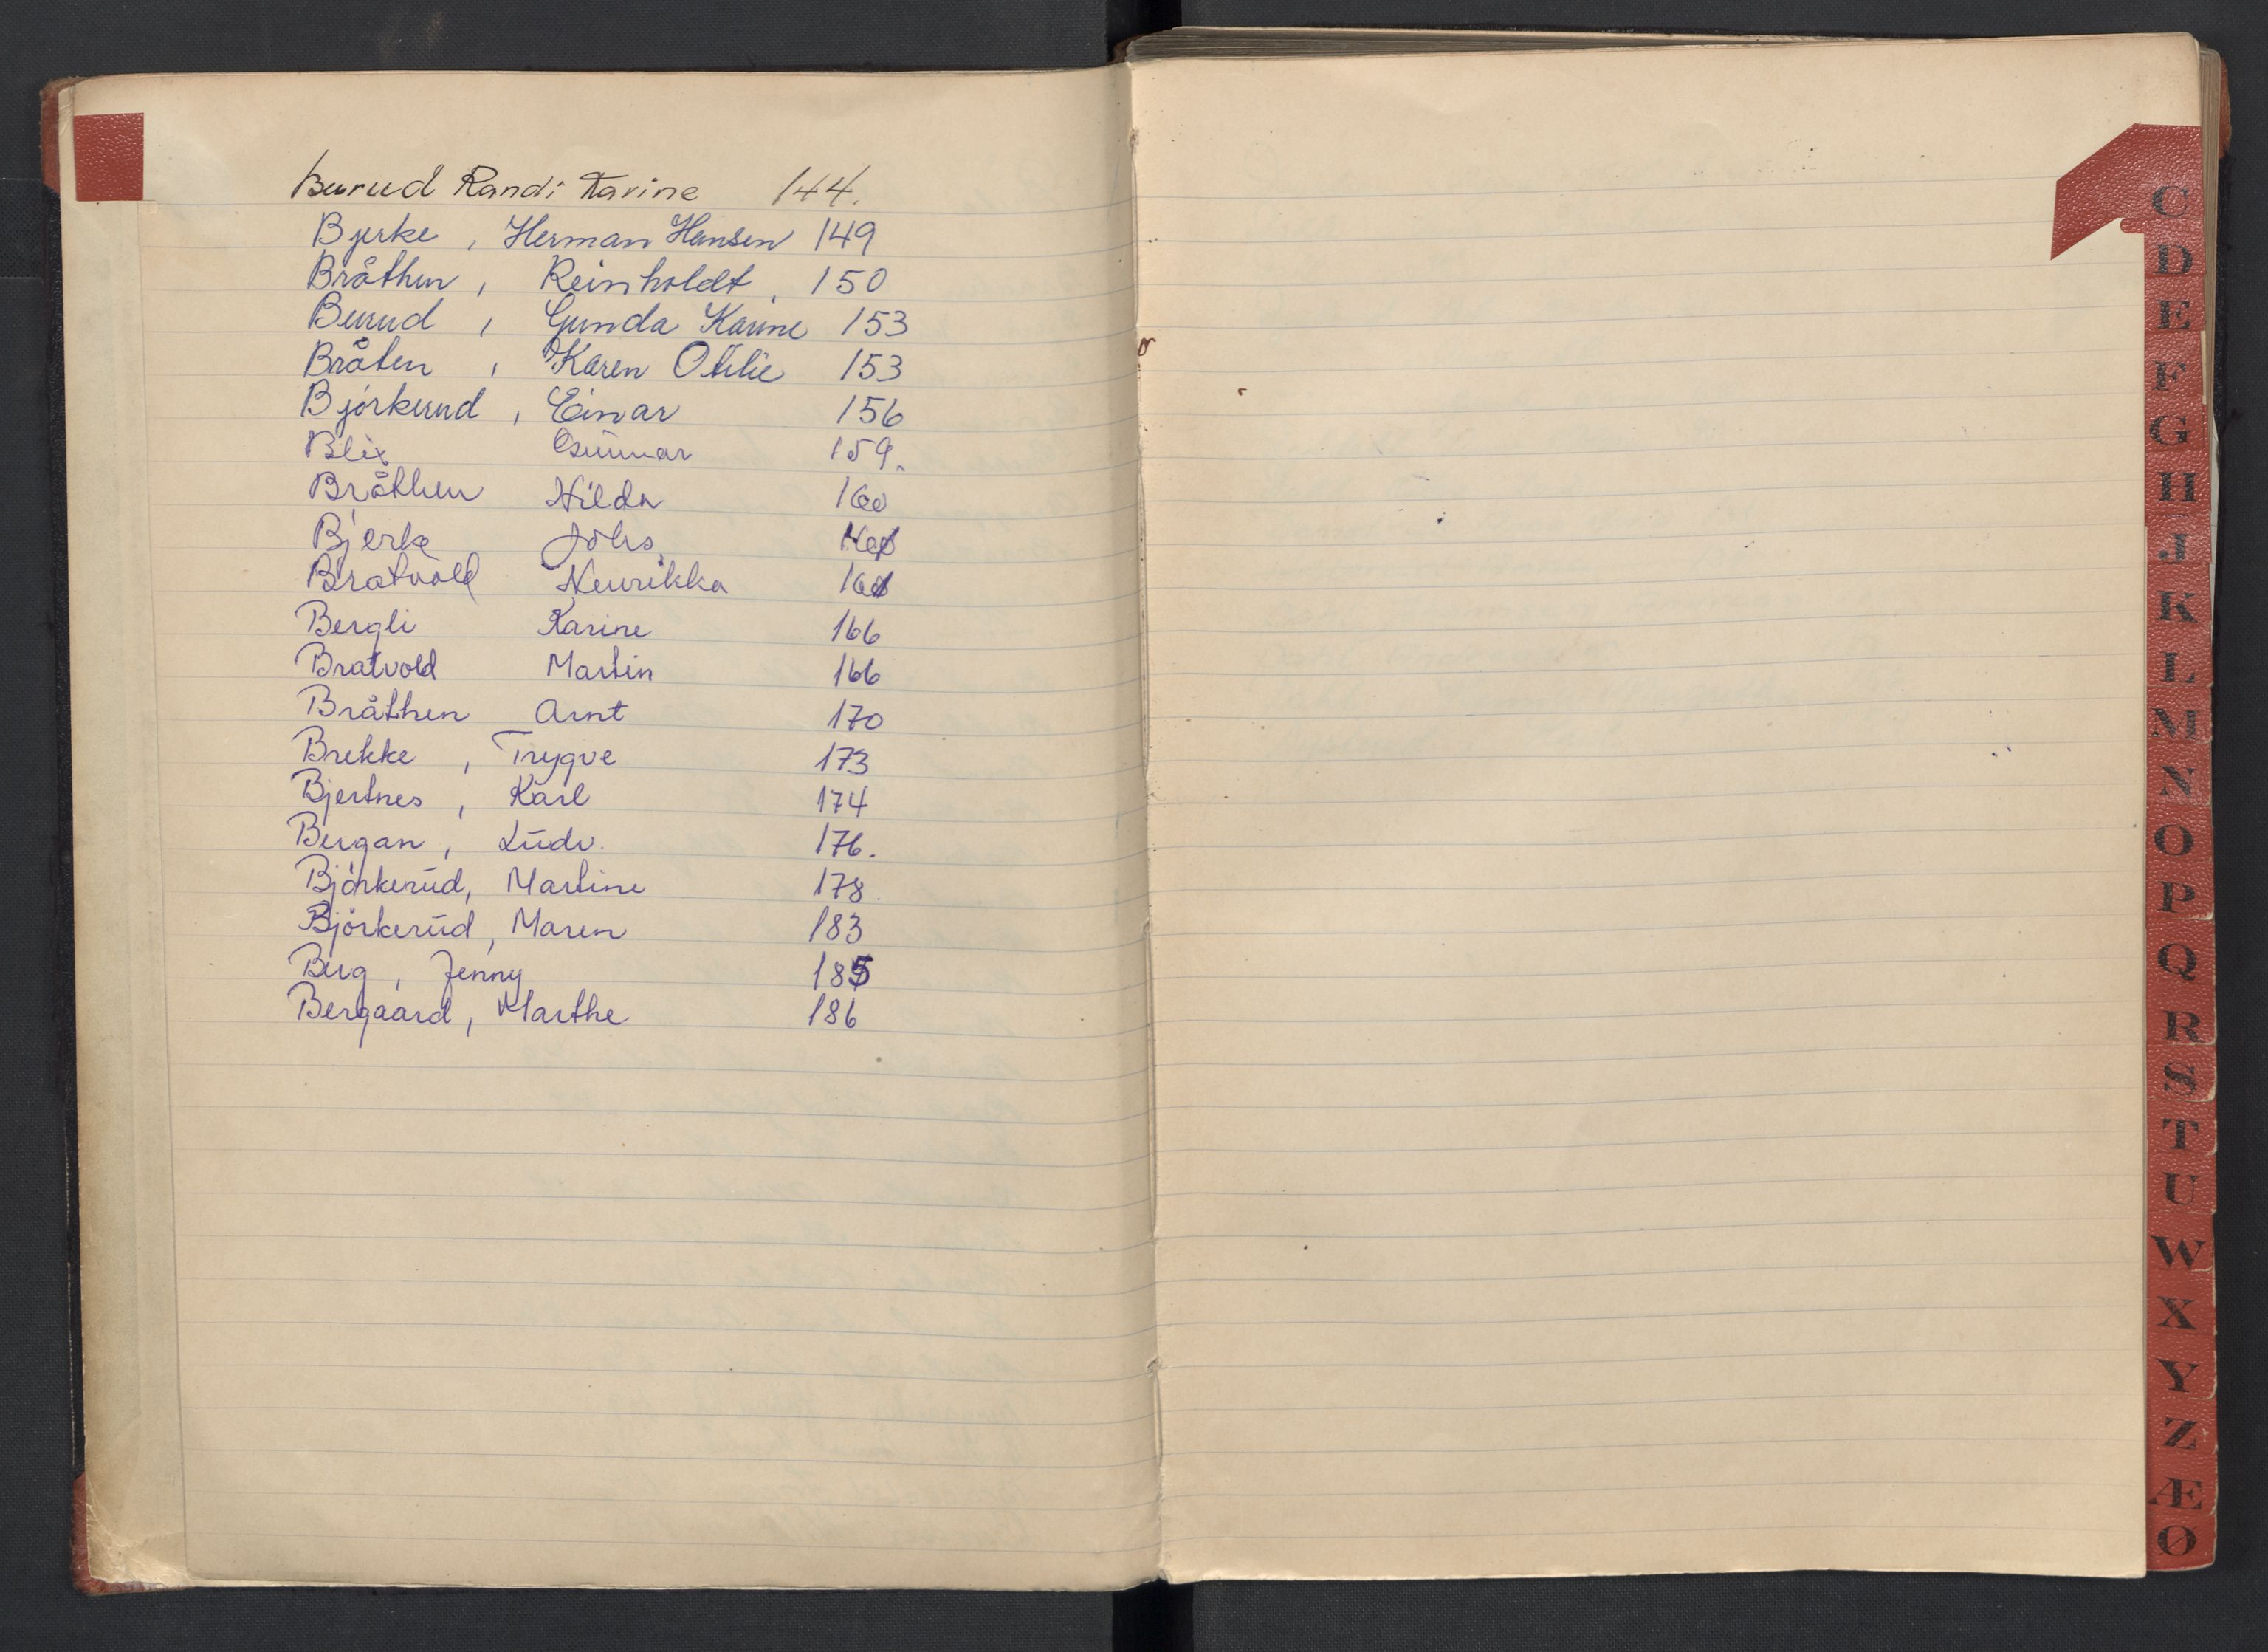 Burud Randi Karine 144.
Bjerke, Herman Hansen 149
Bråthen, Reinholdt, 150
Burud, Gunda Karine 153
Bråten, Karen Otilie 153
Björkerud, Einar 156
Blix Gunnar 159.
Bråthen Hilda 160
Bjerke Johs.
Bratvold Henrikka
Bergli Karine 166
Bratvold Martin 166
Bråthen Arnt 170
Brekke, Trygve 173
Bjertnes, Karl 174
Bergan, Ludv. 176.
Björkerud, Martine 178
Björkerud, Maren 183
Berg, Jenny 185
Bergaard, Marthe 186
C
D
E
F
G
H
I
K
L
M
N
O
P
Q
R
S
T
U
W
X
Y
Z
Æ
Ø